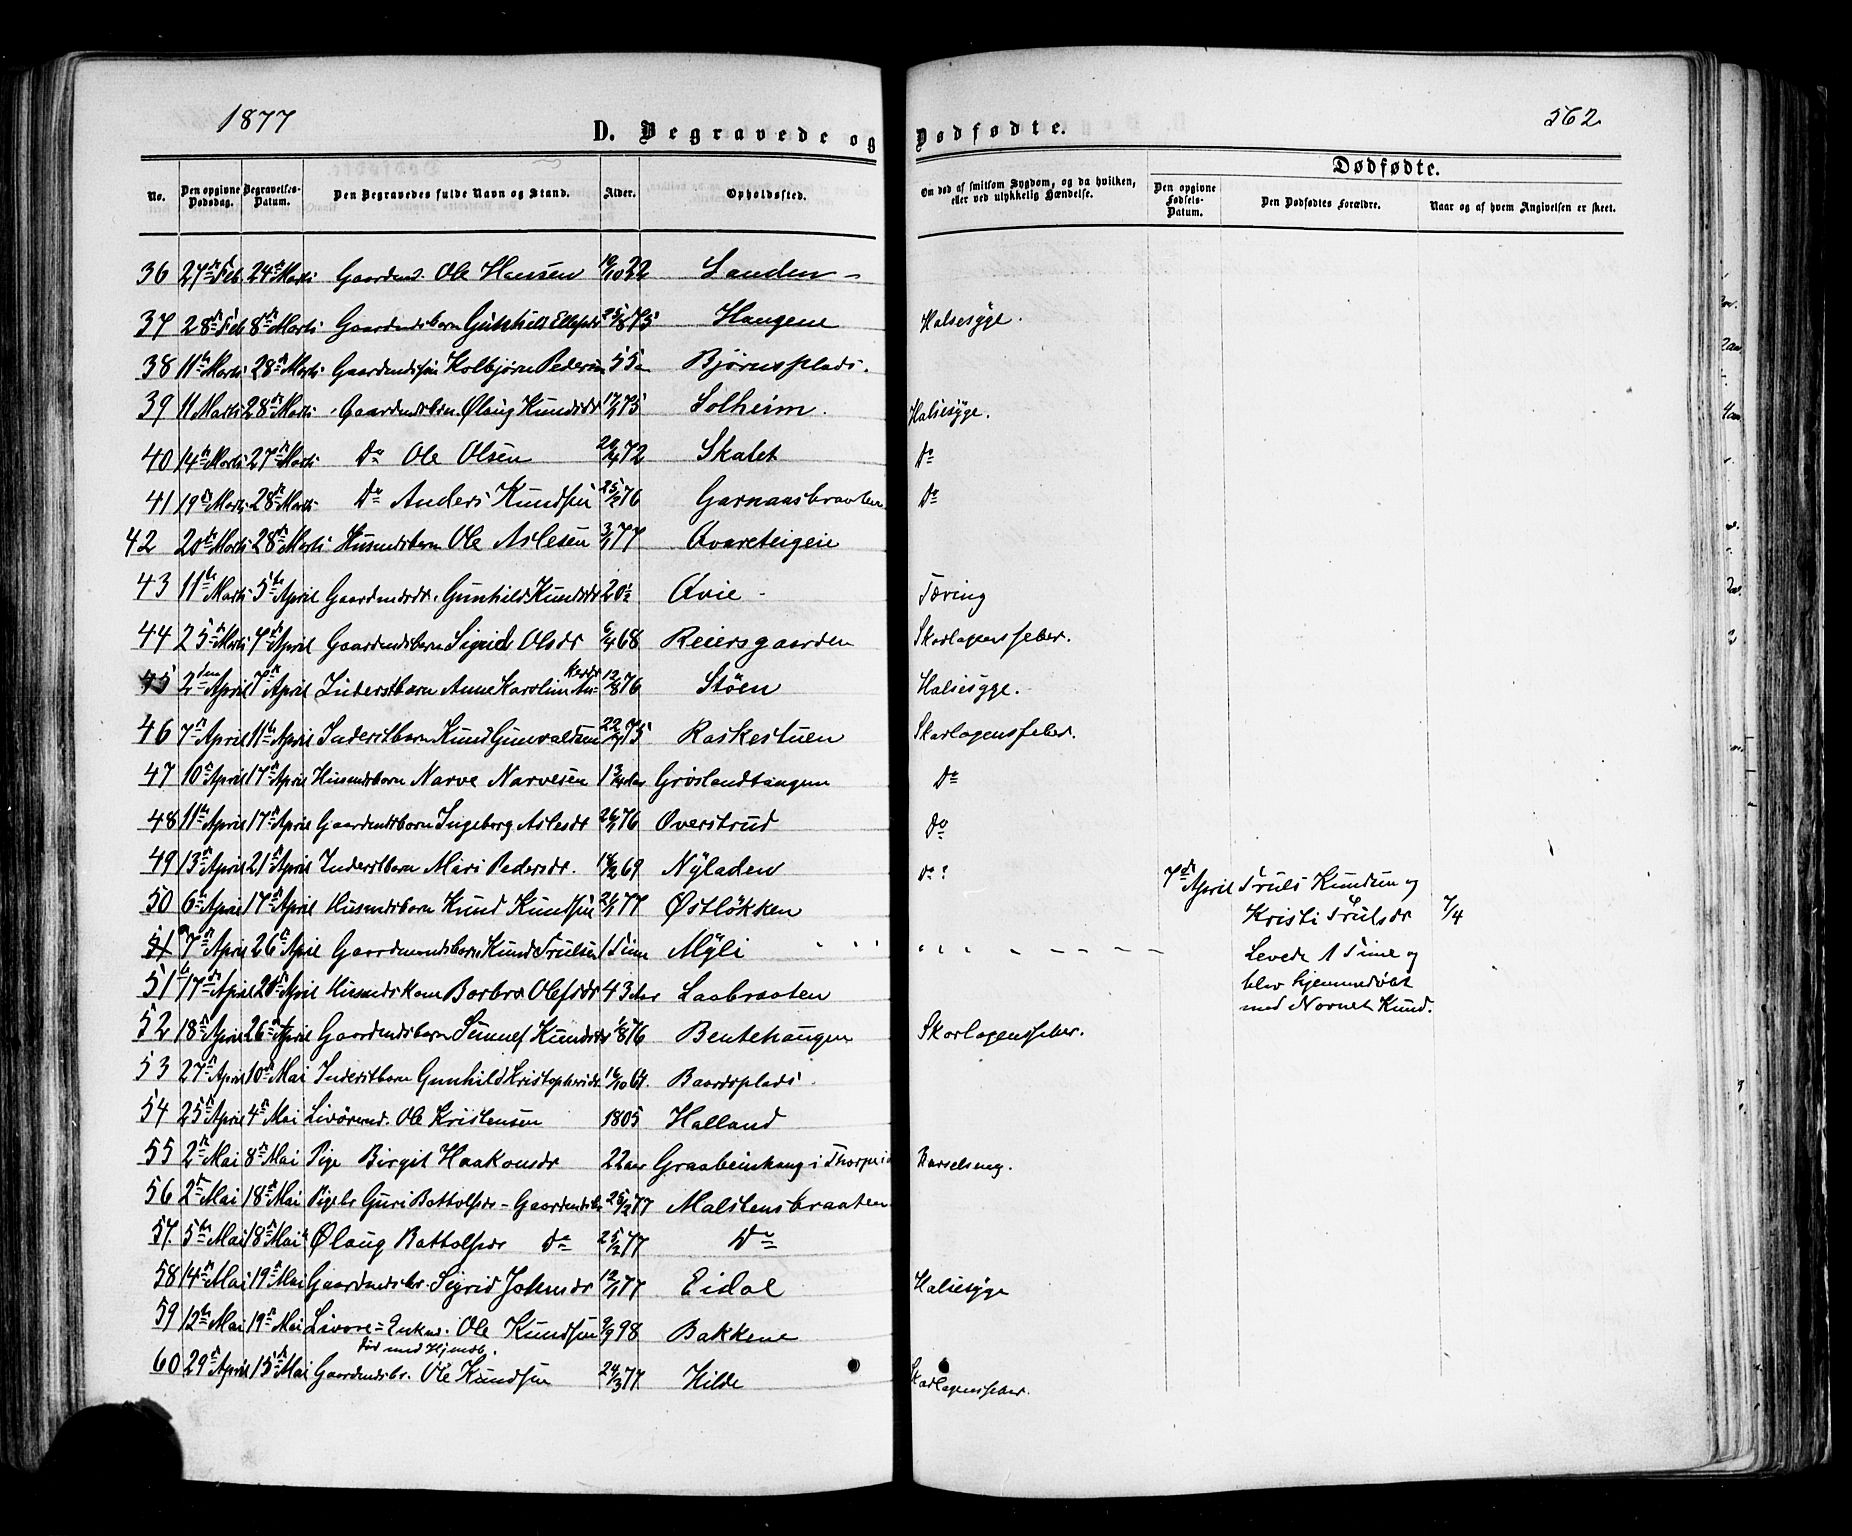 1877
562
D. Begravede og Dødfødte.
Dødfødte.
No. Den opgivne Dødsdag. Begravelses-Datum. Den Begravedes fulde Navn og Stand. Alder. Opholdssted. Om død af smitsom Sygdom, og da hvilken, eller ved ulykkelig Hændelse. Den opgivne Fødsels-Datum. Den Dødfødtes Forældre. Naar og af hvem Angivelsen er skeet.
36 27de Feb. 24de Marts Gaardmd. Ole Hansen 22 Sanden
37 28de Feb 8de Marts Gaardmdsbarn Gunhild Ellefsdr 25/8 73 Haugene Halsesyge.
38 11te Marts 28de Marts Gaardmdssøn Kolbjørn Pedersen 55 Bjørnsplads.
39 11 Marts 28de Marts Gaardmdsbrn. Ølaug Knudsdr 75 Solheim. Halsesyge.
40 14de Marts 27de Marts Do Ole Olsen 72 Skalet Do
41 19de Marts 28de Marts Do Anders Knudsen 25/2 76 Garnaasbraaten Do
42 20de Marts 28de Marts Husmdsbarn Ole Aslesen 3/1 77 Qvareteigen
43 11te Marts 5te April Gaardmdsdr. Gunhild Knudsdr 20 Qvie Tæring
44 25de Marts 7de April Gaardmdsbarn Sigrid Olsdr 6/4 68 Reiersgaarden Skarlagensfeber.
45 2den April 7de April Inderstbarn Anne Karolin An= kersdr 12/8 76 Støen Halsesyge.
46 7de April 11te April Inderstbarn Knud Gunvaldsen 75 Raskestuen Skarlagensfeber.
47 10de April 17de April Husmdsbarn Narve Narvesen 1 3/4 Aar Grøslandtangen Do
48 11te April 17de April Gaardmdsbarn Ingeborg Aslesdr 76 Overstrud Do
49 13de April 21de April Inderstbarn Mari Pedersdr. 69 Nyladen Do?
50 6te April 17de April Husmdsbarn Knud Knudsen 77 Østløkken
7de April Truls Knudsen og
Kristi Trulsdr 7/4
51 7de April 26de April Gaardmandsbarn Knud Trulsen 1 Time Myli
Levede 1 Time og
blev hjemmedøbt
med Navnet Knud.
51 17de April 20de April Husmdskone Barbro Olefsdr 43 Aar Laabraaten
52 18de April 26de April Gaardmdsbarn Sunnef Knudsdr 76 Bentehaugen Skarlagensfeber.
53 27de April 10de Mai Inderstbarn Gunhild Kristophersdr 16/10 64 Baardsplads.
54 25de April 4de Mai Livøremd. Ole Kristensen 1805 Halland
55 2de Mai 8de Mai Pige Birgit Haakonsdr 22 aar Graabeinhaug i Thorpe Barselseng.
56 2de Mai 18de Mai Pigebr Guri Battolfsdr - Gaardmdsbr 25/2 77 Malstensbraaten
57. 5te Mai 18de Mai Ølaug Battolfsdr do 25/2 77 Do
58 14de Mai 19de Mai Gaardmdsbr. Sigrid Johnsdr 12/1 77 Eidal Halsesyge
59 12te Mai 19de Mai Livøre= Enkem. Ole Knudsen 98 Bakkene
60 29de April 15de Mai Gaardmdsbr. Ole Knudsen 24/3 77. Hilde Skarlagensfeber.